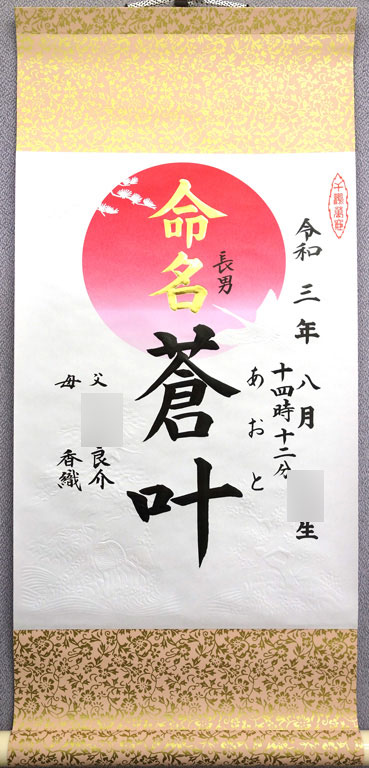 令和三年八月
生
十四時十二分
あおと
命名
長男
蒼叶
父
良介
母
香織